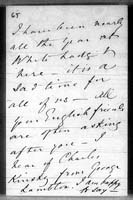 65
I have been nearly
all the year at
White Lodge
here - it is a
sad time for
all of us - all
your English friends
are often asking
after you - I
hear of Charles
Kinsky from George
Lambton. I am happy
to say